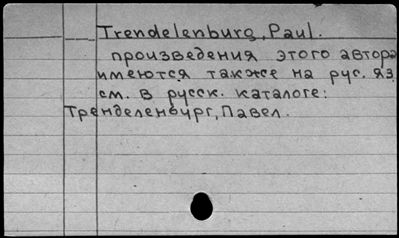 Trendelenburg, Paul.
произведения этого автора
имеются также на рус. яз.
см. в русск. каталоге:
Тренделенбург, Павел.